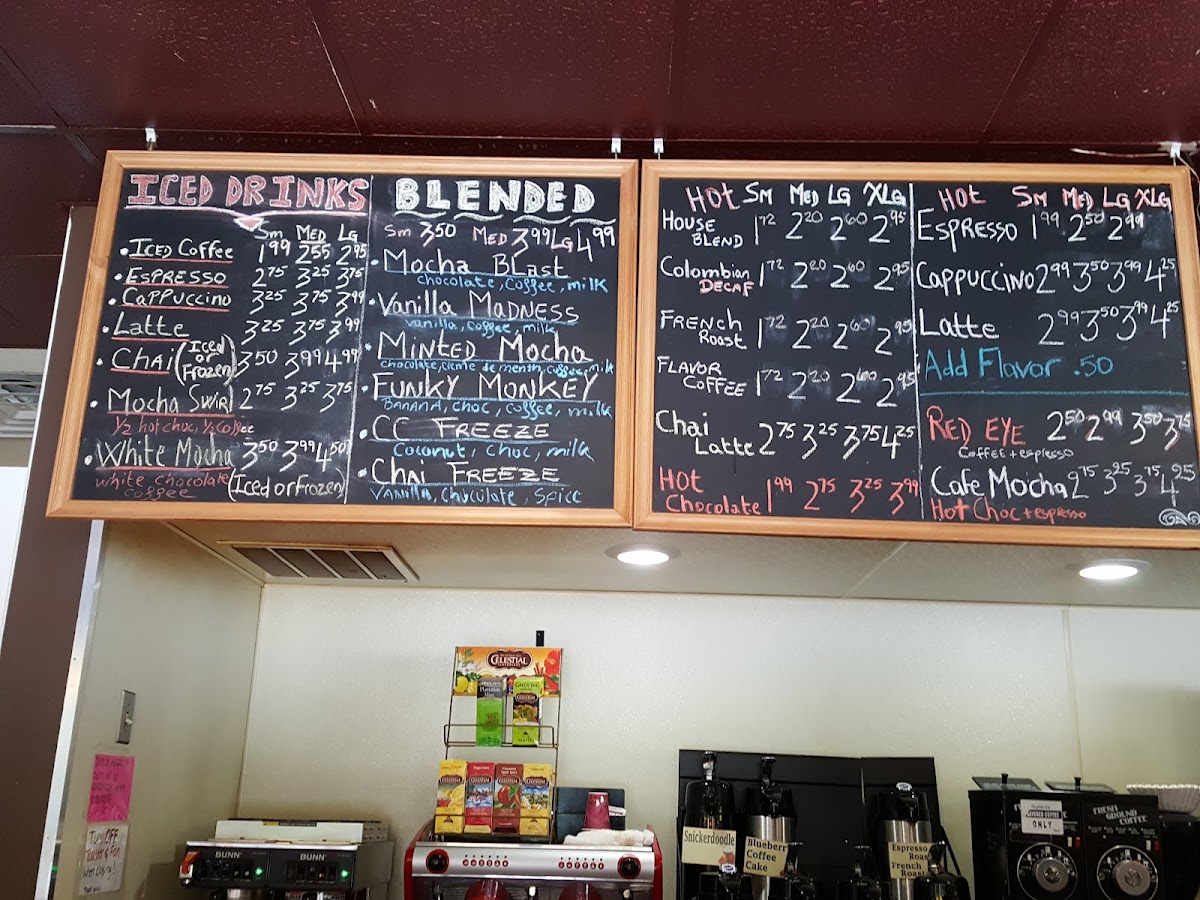 ICED DRINKS
Sm MED LG
• ICED COFFEE 1 99 2 55 2 95
• ESPRESSO 2 75 3 25 3 75
• CAPPUCCINO 3 25 3 75 3 99
• LATTE 3 25 3 75 3 99
• CHAI (Iced or Frozen) 3 50 3 99 4 99
• Mocha Swirl 2 75 3 25 3 75
1/2 hot choc, 1/2 coffee
• White Mocha 3 50 3 99 4 50
white chocolate coffee (Iced or Frozen)
BLENDED
Sm 3 50 MED 3 99 LG 4 99
• Mocha Blast
chocolate, coffee, milk
• Vanilla Madness
vanilla, coffee, milk
• Minted Mocha
chocolate, creme de menth, coffee, milk
• FUNKY MONKEY
BANANA, choc, coffee, milk
• CC FREEZE
Coconut, choc, milk
• Chai FREEZE
Vanilla, Chuculate, Spice
HOT Sm MED LG XLG
HOUSE BLEND 1 72 2 20 2 60 2 95
Colombian DECAF 1 72 2 20 2 60 2 95
FRENCH ROAST 1 72 2 20 2 60 2 95
FLAVOR COFFEE 1 72 2 20 2 60 2 95
Chai Latte 2 75 3 25 3 75 4 25
HOT Chocolate 1 99 2 75 3 25 3 99
HOT Sm MED LG XLG
ESPRESSO 1 99 2 50 2 99
CAPPUCCINO 2 99 3 50 3 99 4 25
LATTE 2 99 3 50 3 99 4 25
Add Flavor .50
RED EYE 2 50 2 99 3 50 3 75
COFFEE + espresso
Cafe Mocha 2 75 3 25 3 75 4 25
Hot Choc + espresso
CELESTIAL
BUNN
BUNN
Turn OFF
Snickerdoodle
Blueberry
Coffee
Cake
Espresso
Roast
French
Roast
ONLY
FRESH
GROUND
COFFEE